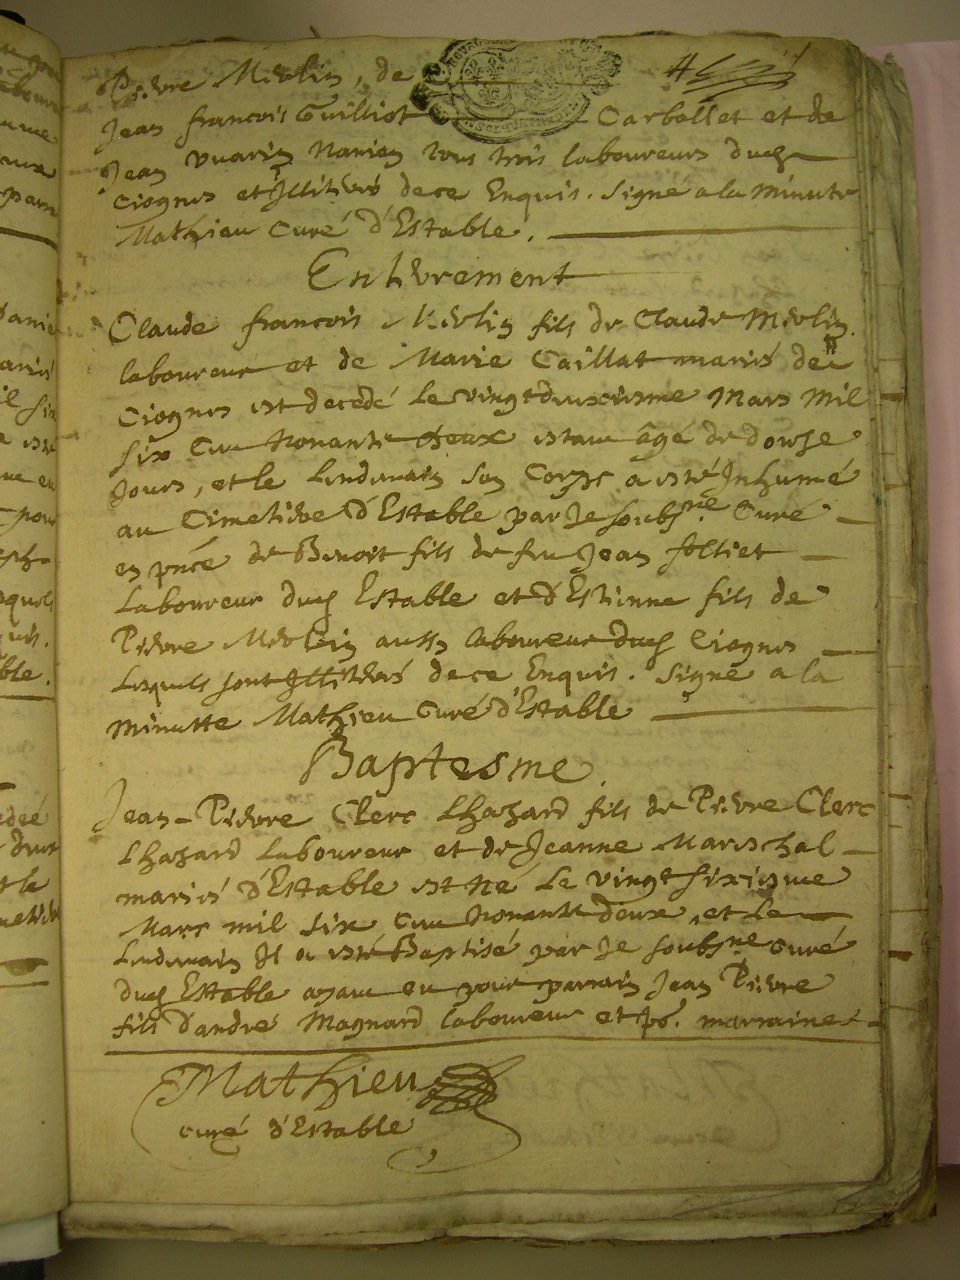 Pierre Mirlin, de
4
Jean francois Guilliot Carballet et de
Jean vuarin Nanien tous trois laboureurs dud
Ciognes et Illitterés de ce Enquis. Signé a la Minutte
Mathieu Curé d'Estable.
Enterrement
Claude francois Mirlin fils de Claude Mirlin
laboureur et de Marie Caillat mariés de
Ciognes est decedé Le vingt deuxiesme Mars Mil
six Cen Nonante deux estan âgé de douze
Jours, et le Lendemain son Corps a esté Inhumé
au Cimetiere d'Estable par Je soubs.né Curé
en pnce de Benoit fils de feu Jean folliet
Laboureur dud Estable et d'Estienne fils de
Pierre Mirlin aussy laboureur dud Ciognes
Lesquels sont Illitterés de ce Enquis. Signé a la
minutte Mathieu Curé d'Estable
Baptesme.
Jean-Pierre Clerc Lhazard fils de Pierre Clerc
Lhazard Laboureur et de Jeanne Mareschal
mariés d'Estable est né Le vingt sixiesme
Mars mil six Cen Nonante deux, et Le
Lendemain Il a esté Baptisé par Je soubs.né curé
dud Estable ayan eu pour parrain Jean Pierre
fils d'andré Magnard laboureur et p. marraine
Mathieu
curé d'Estable